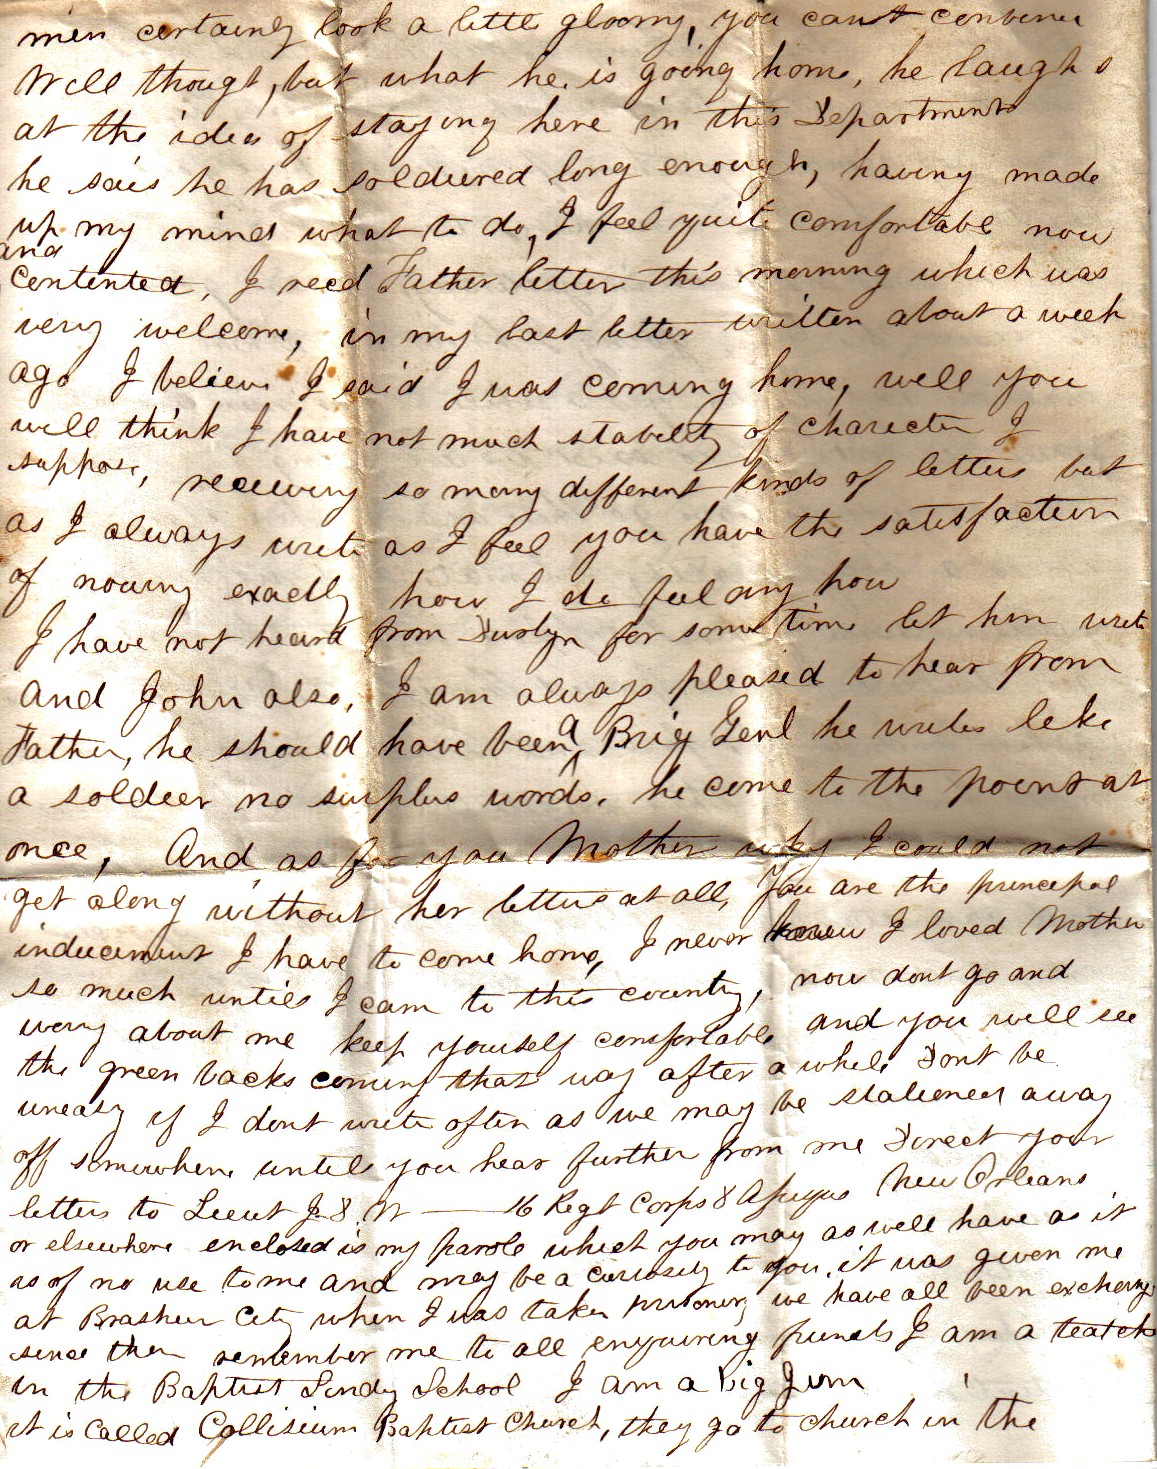 men certainly look a little gloomy, you cant convince
Will though, but what he is going home, he laughs
at the idea of staying here in this Department
he sais he has soldiered long enough, having made
up my mind what to do, I feel quite comfortabl now
and
contented, I recd Father letter this morning which was
very welcome, in my last letter written about a week
ago I believe I said I was coming home, well you
will think I have not much stability of charicter I
suppose, receiving so many different kinds of letters but
as I always write as I feel you have the satisfaction
of nowing exactly how I do feel any how
I have not heard from for some time let him write
and John also, I am always pleased to hear from
Father, he should have been a Brig Genl he writes like
a soldier no surplus words, he come to the point at
once, And as for you Mother why I could not
get along without her letters at all, You are the principal
inducement I have to come home, I never knew I loved Mother
so much untill I cam to this country, now dont go and
worry about me keep yourself comfortable and you will see
the green backs coming that way after a while Dont be
uneasy if I dont write often as we may be stationed away
off somewhere until you hear further from me Direct your
letters to Lieut J. 16 Regt Corps New Orleans
or elsewhere enclosed is my parole which you may as well have as it
is of no use to me and may be a curiosity to you, it was given me
at Brashur City when I was taken prisoner, we have all been exchang
since then remember me to all enquiring friends I am a teatch
in the Baptist Sundy School I am a big
it is called Colliseum Baptist Church, they go to church in the